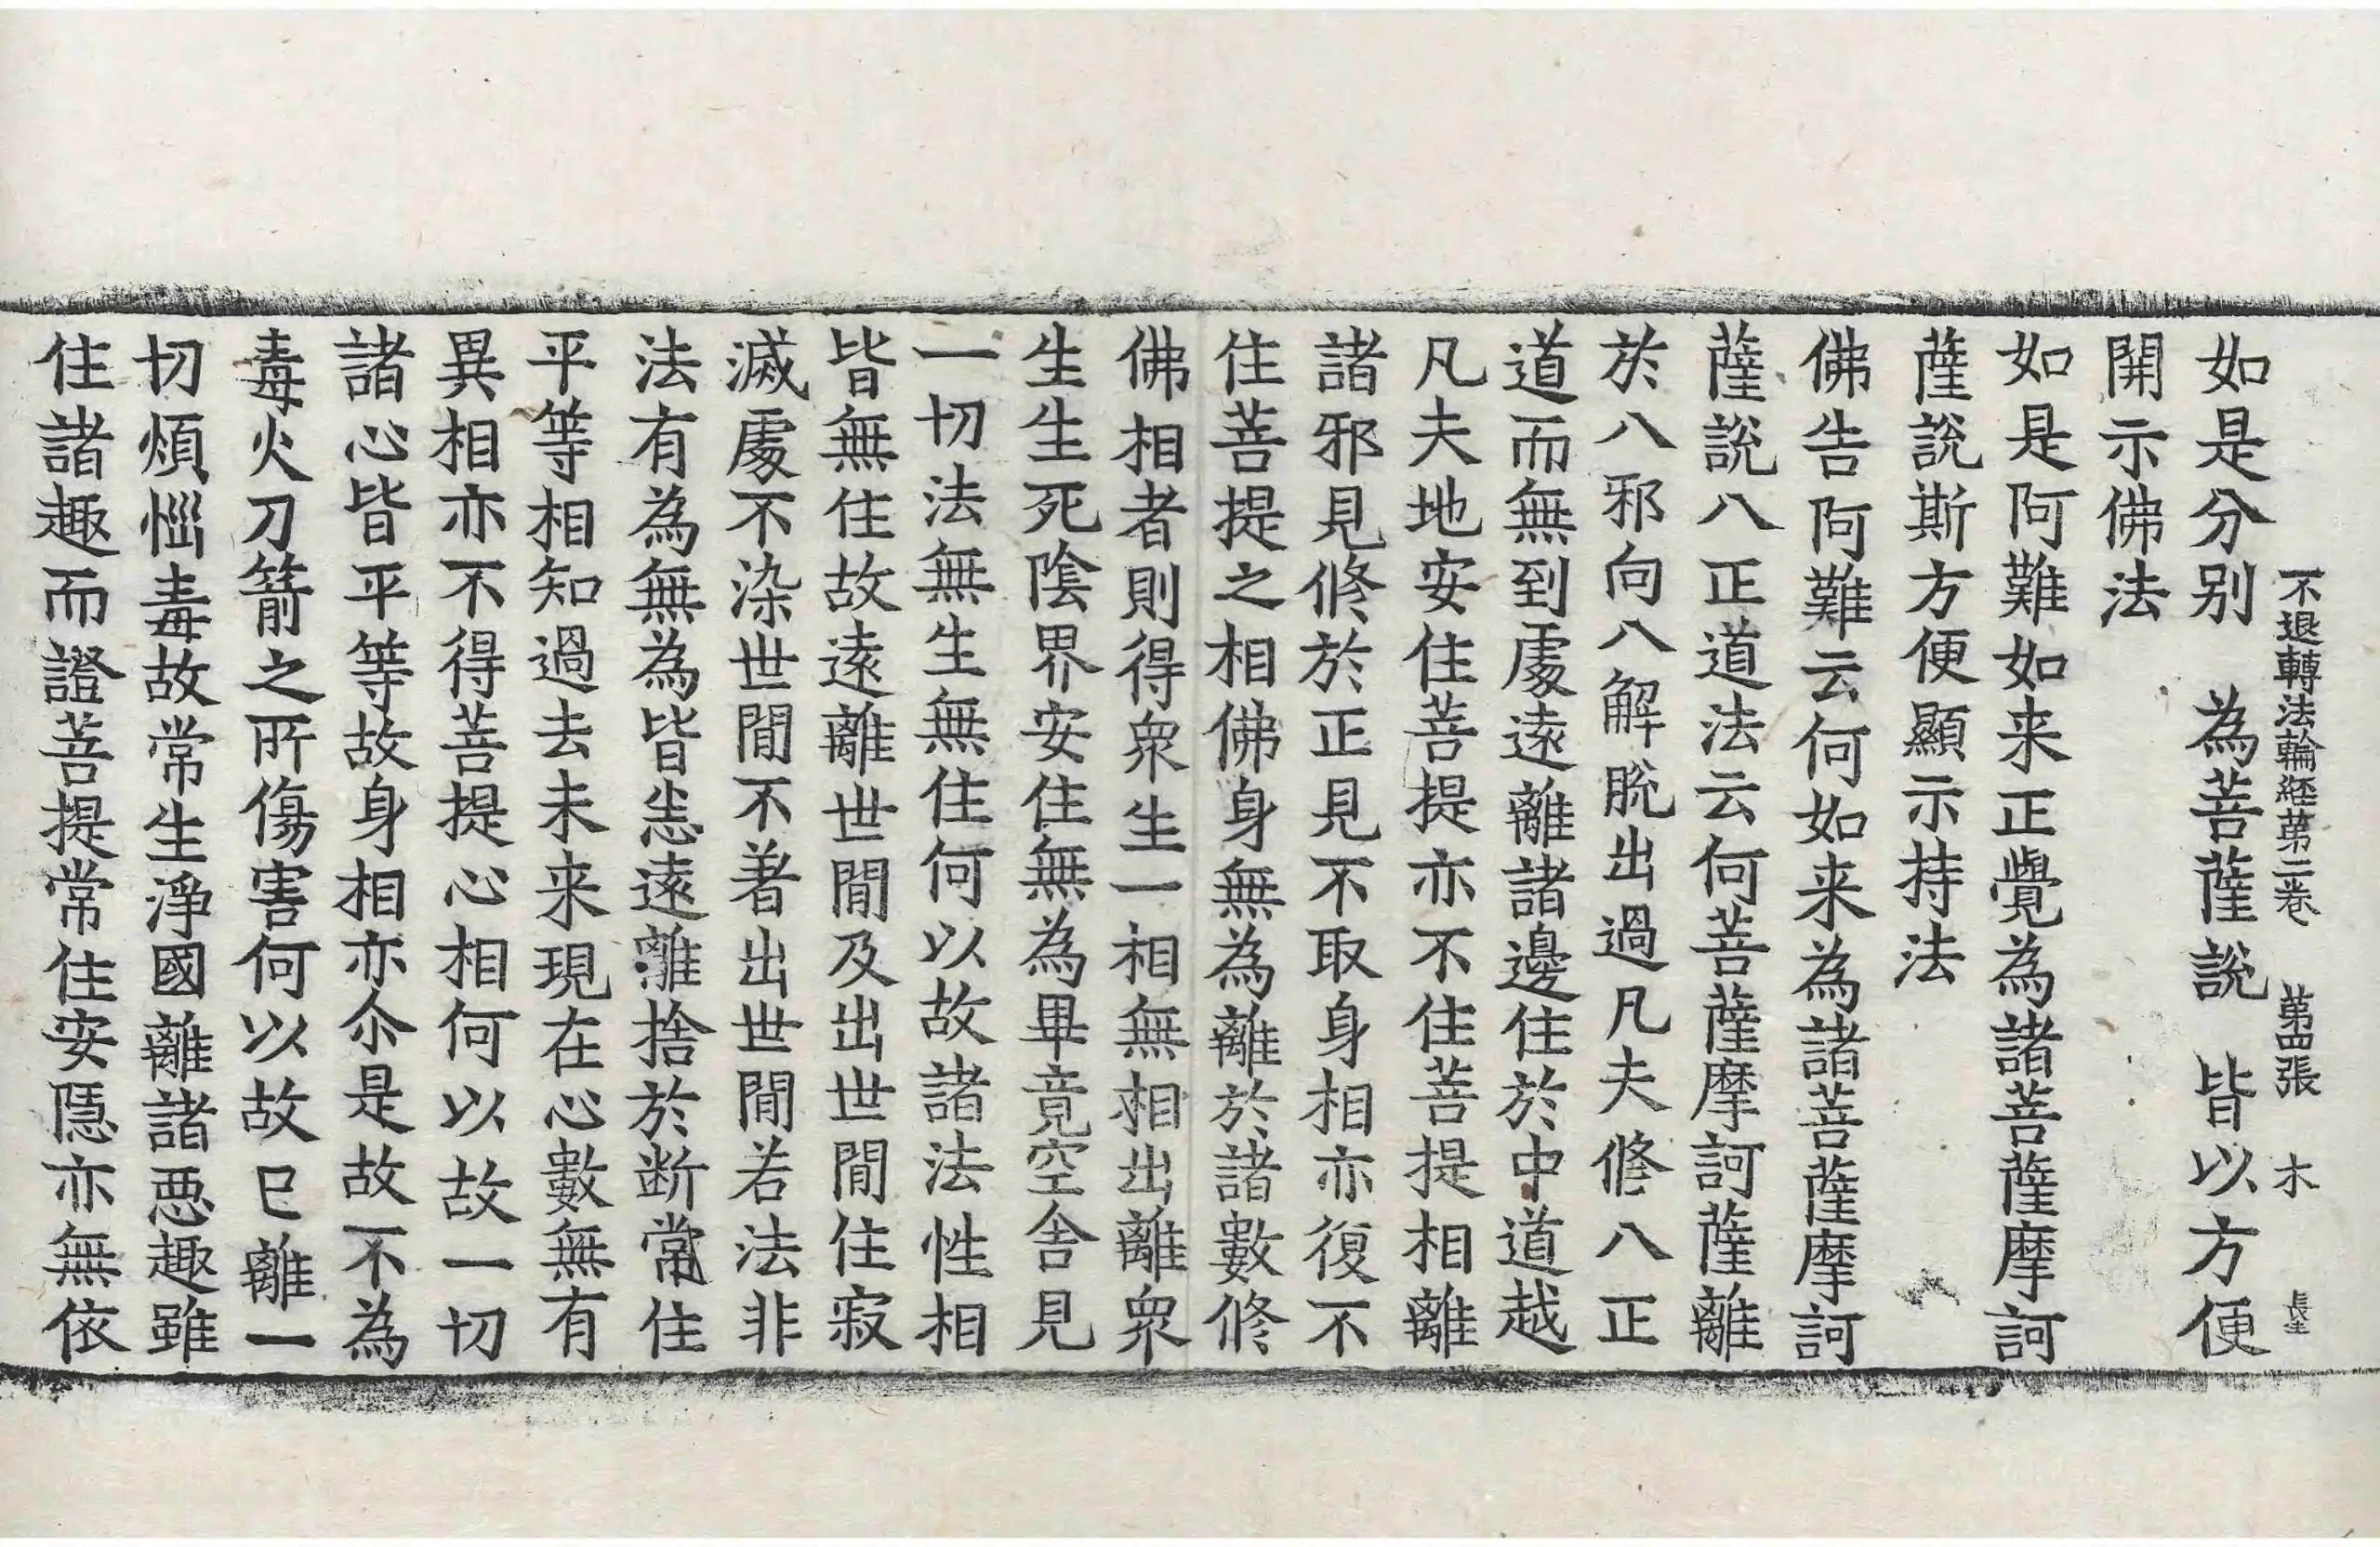 不退轉法輪経第二卷　第四張　木　長生
如是分别　為菩薩說　皆以方便
開示佛法
如是阿難如来正覺為諸菩薩摩訶
薩說斯方便顯示持法
佛告阿難云何如来為諸菩薩摩訶
薩說八正道法云何菩薩摩訶薩離
於八邪向八解脫出過凡夫修八正
道而無到處遠離諸邊住於中道越
凡夫地安住菩提亦不住菩提相離
諸邪見修於正見不取身相亦復不
住菩提之相佛身無為離於諸數修
佛相者則得衆生一相無相出離衆
生生死陰界安住無為畢竟空舍見
一切法無生無住何以故諸法性相
皆無住故遠離世間及出世間住寂
滅處不染世間不著出世間若法非
法有為無為皆悉遠離捨於断常住
平等相知過去未来現在心數無有
異相亦不得菩提心相何以故一切
諸心皆平等故身相亦尒是故不為
毒火刀箭之所傷害何以故已離一
切煩惱毒故常生淨國離諸惡趣雖
住諸趣而證菩提常住安隱亦無依